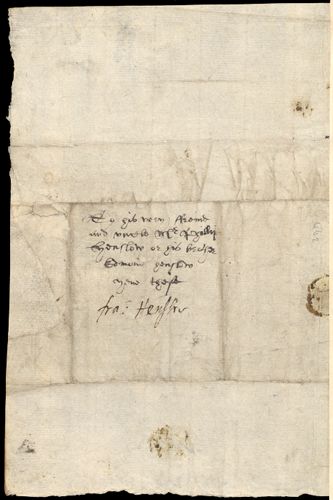 To his very ffrend
and unckle Mr Phillip
Henslow or his
Edmond Henslow
geve these
fra: Hensley